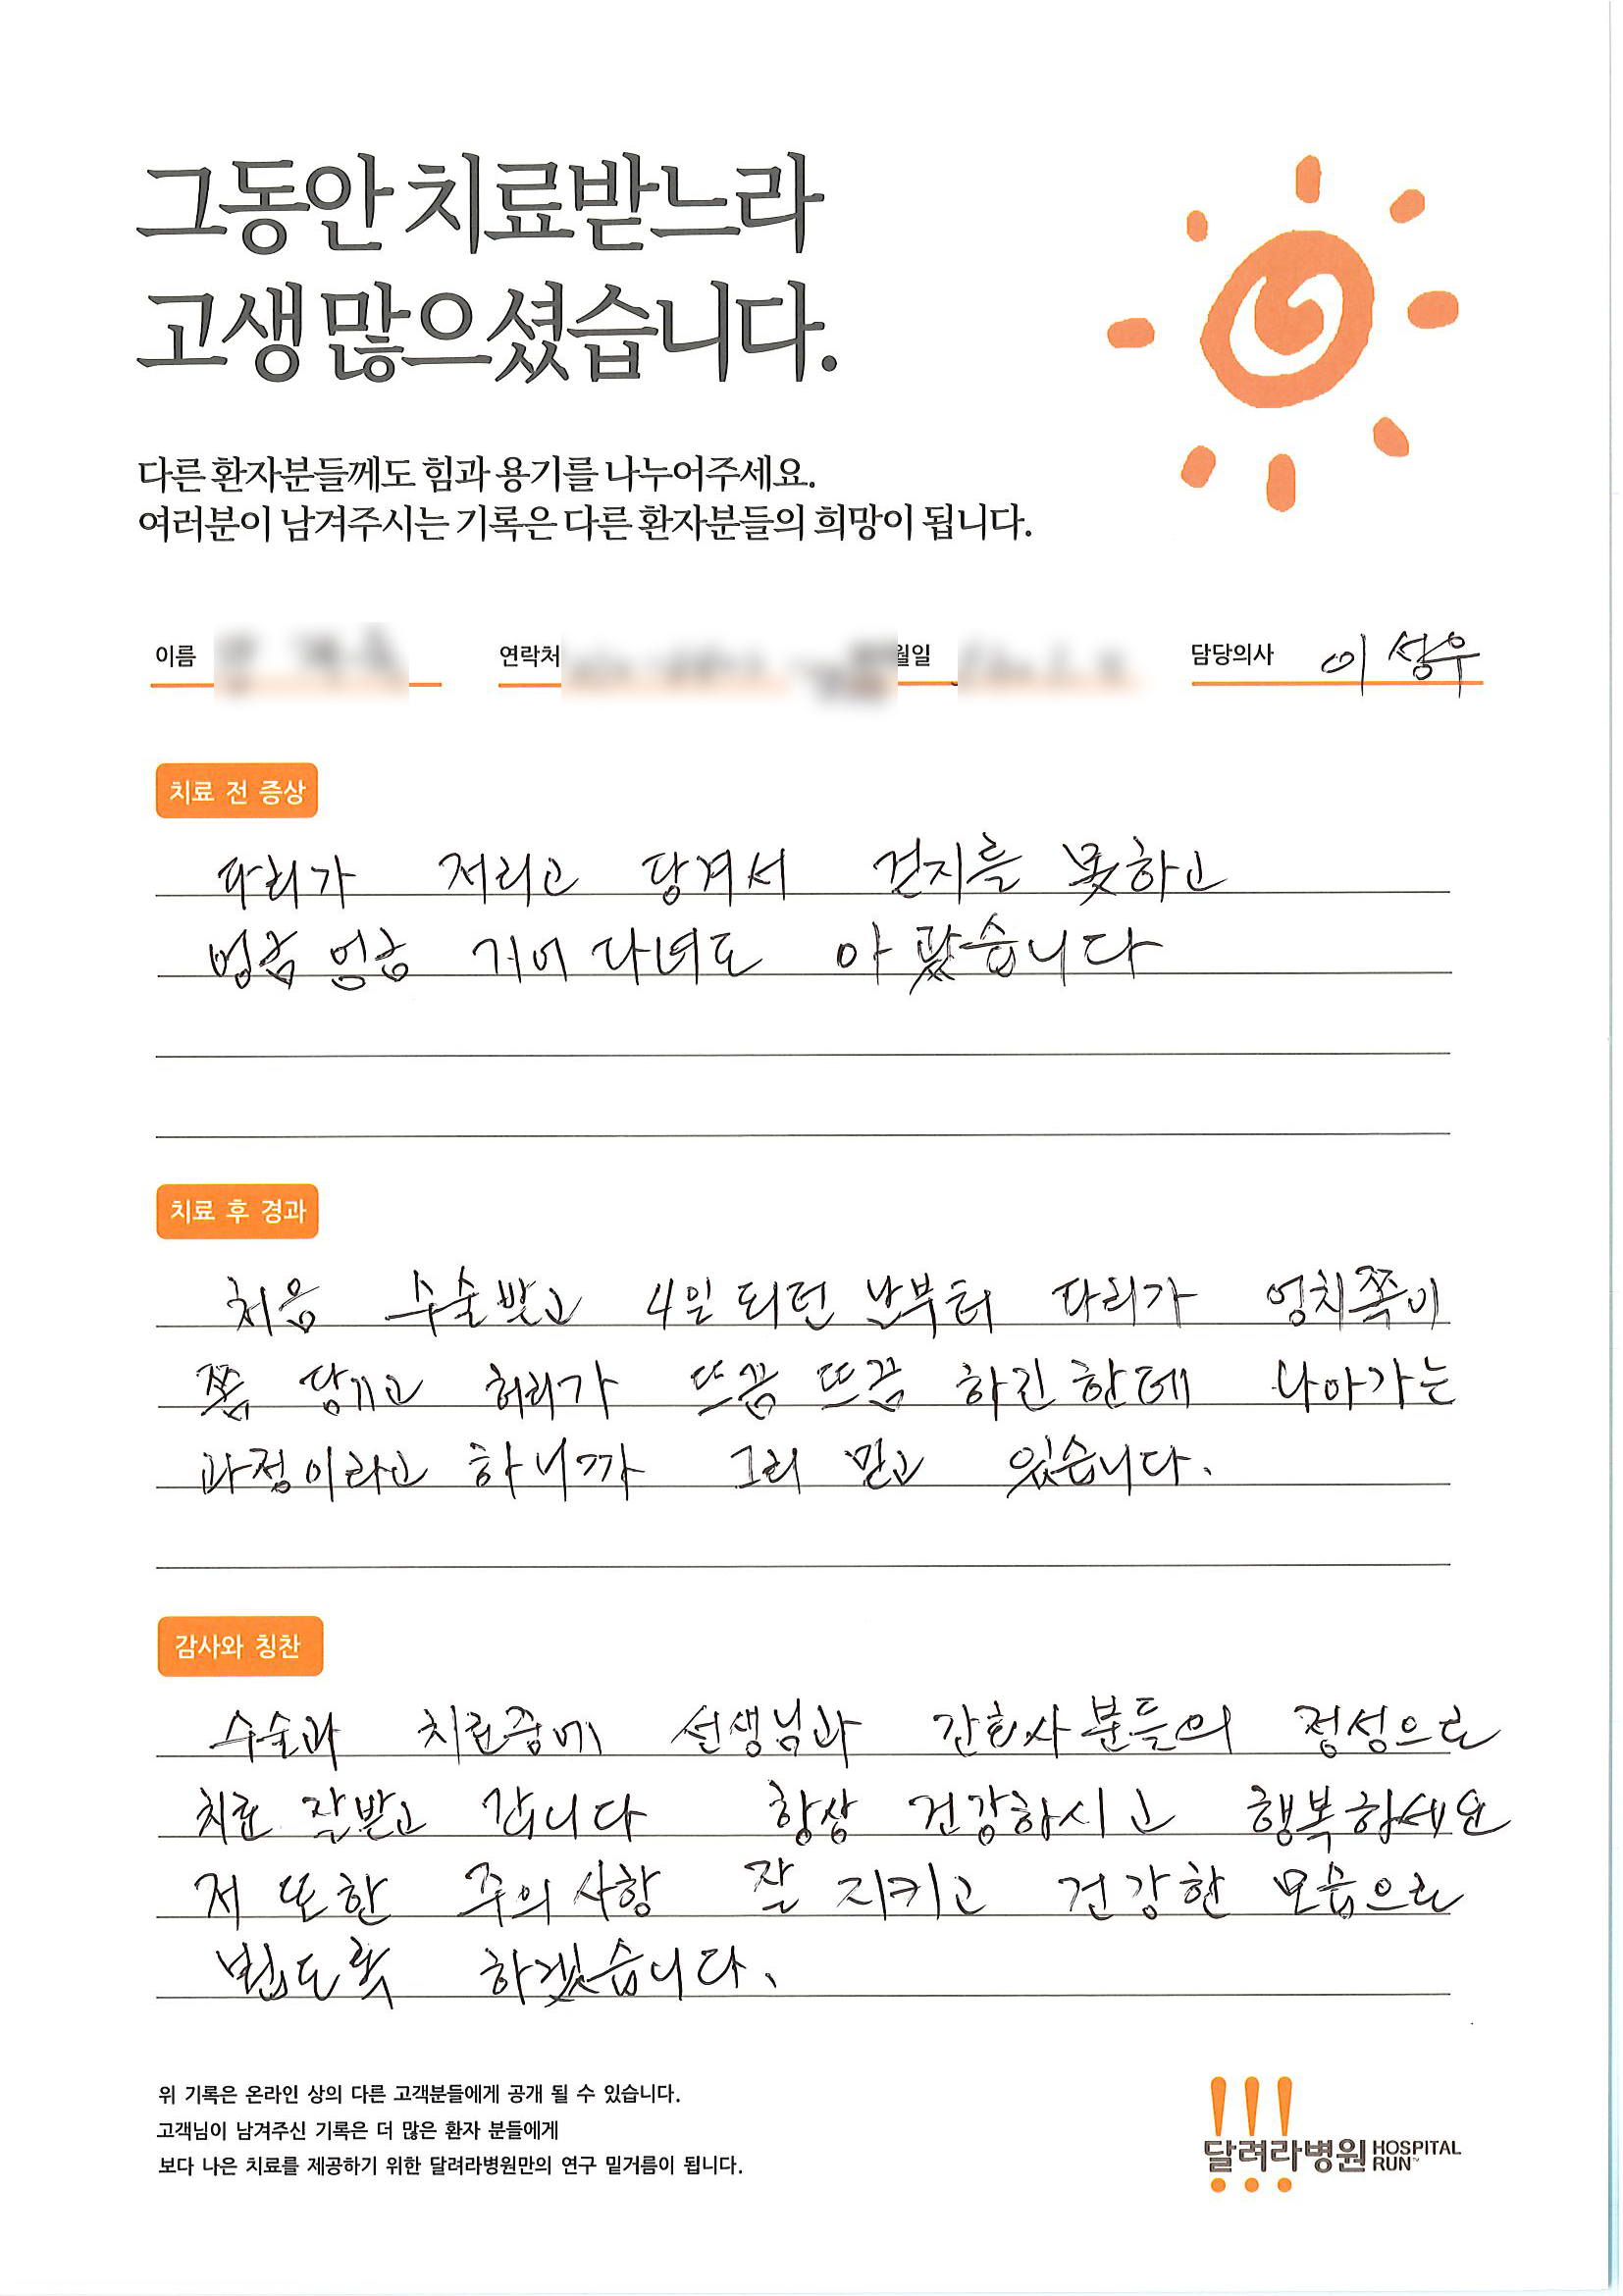 그동안 치료받느라
고생 많으셨습니다.
다른 환자분들께도 힘과 용기를 나누어주세요.
여러분이 남겨주시는 기록은 다른 환자분들의 희망이 됩니다.
이름 연락처 월일 담당의사 이성우
치료 전 증상
다리가 저리고 당겨서 걷지를 못하고
엉금 엉금 기어 다녀도 아팠습니다
치료 후 경과
처음 수술받고 4일 되던 날부터 다리가 엉치쪽이
쫌 당기고 허리가 뜨끔 뜨끔 하긴 한데 나아가는
과정이라고 하니까 그리 믿고 있습니다.
감사와 칭찬
수술과 치료중에 선생님과 간호사분들의 정성으로
치료 잘받고 갑니다 항상 건강하시고 행복하세요
저 또한 주의사항 잘 지키고 건강한 모습으로
뵙도록 하겠습니다.
위 기록은 온라인 상의 다른 고객분들에게 공개 될 수 있습니다.
고객님이 남겨주신 기록은 더 많은 환자 분들에게
보다 나은 치료를 제공하기 위한 달려라병원만의 연구 밑거름이 됩니다.
달려라병원 HOSPITAL RUN